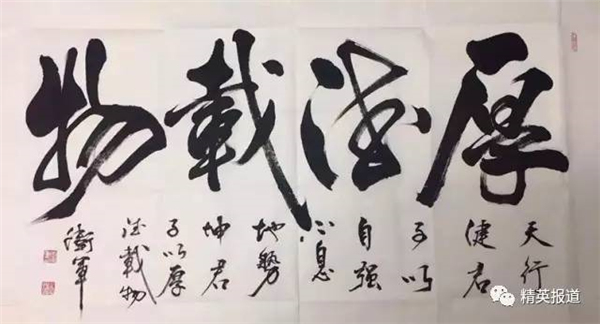 厚德載物
天行
健君
子以
自强
不息
地勢
坤君
子以厚
德載物
衛軍
精英报道